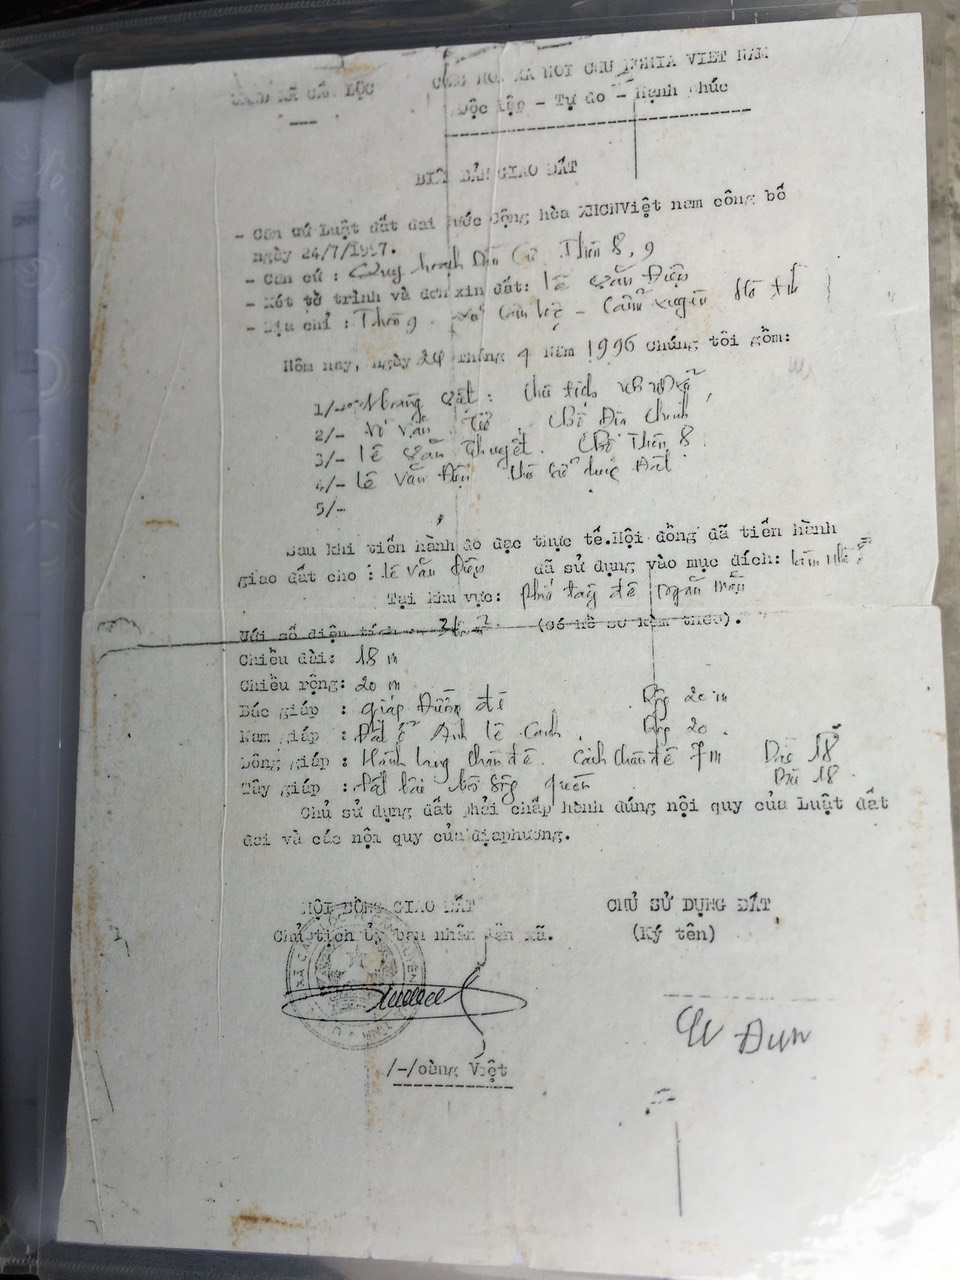 UBND XÃ CẨM LỘC
CỘNG HÒA XÃ HỘI CHỦ NGHĨA VIỆT NAM
Độc lập - Tự do - Hạnh phúc
BIÊN BẢN GIAO ĐẤT
- Căn cứ Luật đất đai nước Cộng hòa XHCNViệt nam công bố
ngày 24/7/1997.
- Căn cứ : Quy hoạch Dân Cư Thôn 8, 9
- Xét tờ trình và đơn xin đất: lê Văn Điệp
- Địa chỉ : Thôn 9 xã Cẩm lộc - Cẩm xuyên Hà tĩnh
Hôm nay, ngày 24 tháng 4 năm 1996 chúng tôi gồm:
1/- Hoàng Việt : Chủ tịch
2/- Văn . Địa chính
3/- lê Văn Thuyết . Thôn 8.
4/- lê Văn Điệp chủ sử dụng Đất
5/-
Sau khi tiến hành đo đạc thực tế.Hội đồng đã tiến hành
giao đất cho : lê Văn Điệp đã sử dụng vào mục đích: làm nhà ở
Tại khu vực: phía tây đê ngăn mặn
Với số diện tích (Có hồ sơ kèm theo).
Chiều dài: 18 m
Chiều rộng: 20 m
Bắc giáp : giáp Đường đê Rộng 20 m
Nam giáp : Đất ở Anh lê Cảnh . Rộng 20 .
Đông giáp : Hành lang chân đê . Cách chân đê 7 m Dài 18
Tây giáp : Đất bãi bờ sông quèn Dài 18.
Chủ sử dụng đất phải chấp hành đúng nội quy của Luật đất
đai và các nội quy của địaphương.
HỘI ĐỒNG GIAO ĐẤT
Chủ tịch ủy ban nhân dân xã.
CHỦ SỬ DỤNG ĐẤT
(Ký tên)
/-/oàng Việt